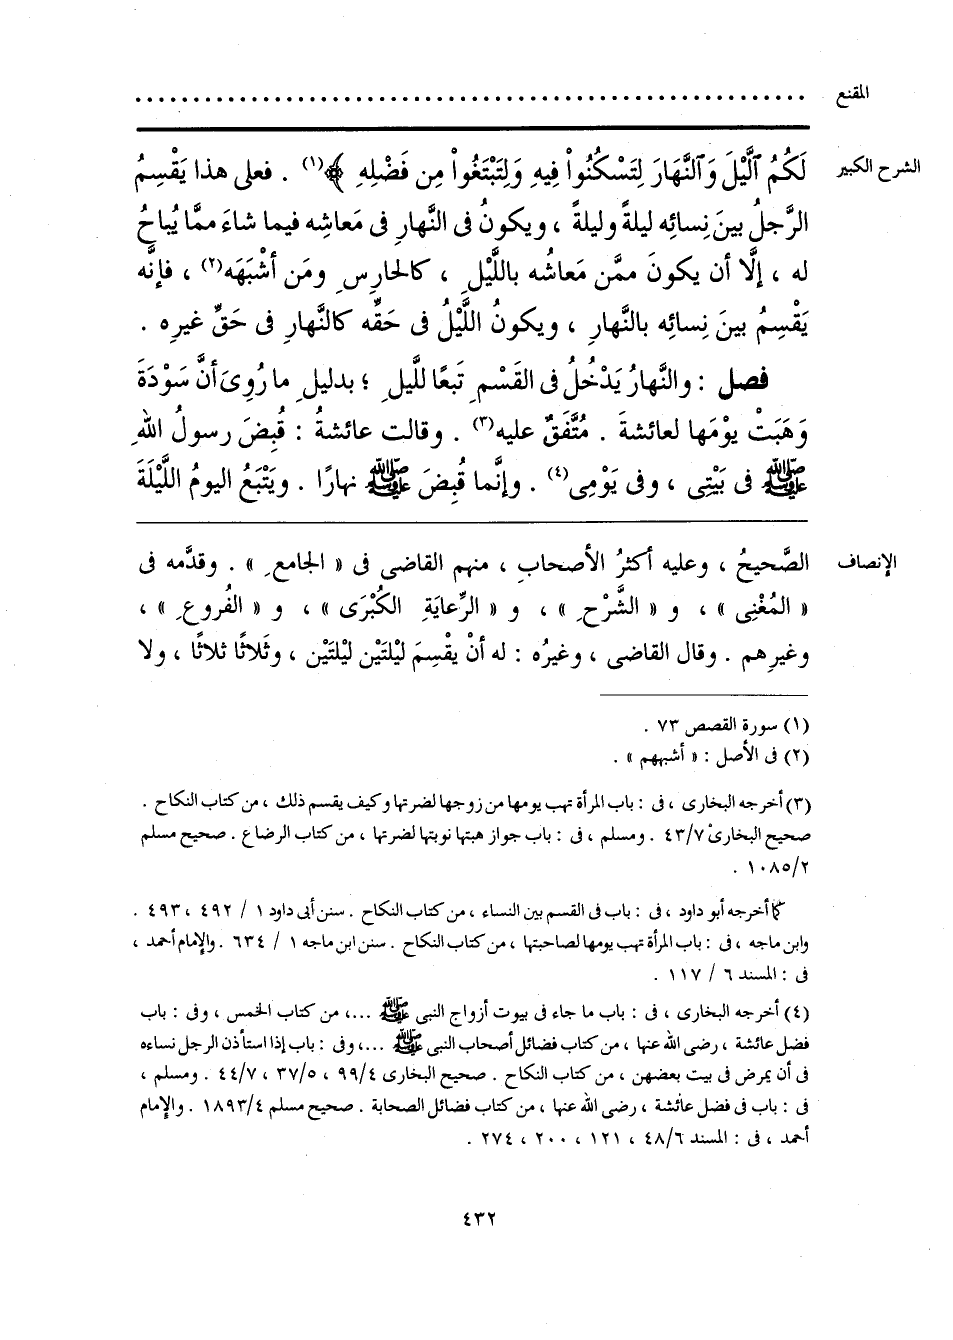 المقنع ............................................................
الشرح الكبير لَكُمُ ٱلَّيْلَ وَٱلنَّهَارَ لِتَسْكُنُواْ فِيهِ وَلِتَبْتَغُواْ مِن فَضْلِهِ ﴾(١) . فعلى هذا يَقْسِمُ
الرَّجلُ بينَ نِسائِه ليلةً وليلةً ، ويكونُ فى النَّهارِ فى مَعاشِه فيما شاءَ ممَّا يُباحُ
له ، إلَّا أن يكونَ ممَّن مَعاشُه باللَّيْلِ ، كالحارِسِ ومَن أشْبَهَه(٢) ، فإنَّه
يَقْسِمُ بينَ نِسائِه بالنَّهارِ ، ويكونُ اللَّيْلُ فى حَقِّه كالنَّهارِ فى حَقِّ غيرِه .
فصل : والنَّهارُ يَدْخُلُ فى القَسْمِ تَبعًا للَّيلِ ؛ بدليلِ ما رُوِىَ أنَّ سَوْدَةَ
وَهَبَتْ يوْمَها لعائشةَ . مُتَّفَقٌ عليه(٣) . وقالت عائشةُ : قُبِضَ رسولُ اللهِ
ﷺ فى بَيْتِى ، وفى يَوْمِى(٤) . وإنَّما قُبِضَ ﷺ نهارًا . ويَتْبَعُ اليومُ اللَّيْلَةَ
الإنصاف الصَّحيحُ ، وعليه أكثرُ الأصحابِ ، منهم القاضى فى « الجامعِ » . وقدَّمه فى
« المُغْنِى » ، و « الشَّرْحِ » ، و « الرِّعايَةِ الكُبْرَى » ، و « الفُروعِ » ،
وغيرِهم . وقال القاضى ، وغيرُه : له أنْ يقْسِمَ ليْلتَيْن ليْلتَيْن ، وثَلاثًا ثلاثًا ، ولا
(١) سورة القصص ٧٣ .
(٢) فى الأصل : « أشبههم » .
(٣) أخرجه البخارى ، فى : باب المرأة تهب يومها من زوجها لضرتها وكيف يقسم ذلك ، من كتاب النكاح .
صحيح البخارىْ ٤٣/٧ . ومسلم ، فى : باب جواز هبتها نوبتها لضرتها ، من كتاب الرضاع . صحيح مسلم
١٠٨٥/٢ .
كما أخرجه أبو داود ، فى : باب فى القسم بين النساء ، من كتاب النكاح . سنن أبى داود ١ / ٤٩٢ ، ٤٩٣ .
وابن ماجه ، فى : باب المرأة تهب يومها لصاحبتها ، من كتاب النكاح . سنن ابن ماجه ١ / ٦٣٤ . والإمام أحمد ،
فى : المسند ٦ / ١١٧ .
(٤) أخرجه البخارى ، فى : باب ما جاء فى بيوت أزواج النبى ﷺ ...، من كتاب الخمس ، وفى : باب
فضل عائشة ، رضى الله عنها ، من كتاب فضائل أصحاب النبى ﷺ ...، وفى : باب إذا استأذن الرجل نساءه
فى أن يمرض فى بيت بعضهن ، من كتاب النكاح . صحيح البخارى ٩٩/٤ ، ٣٧/٥ ، ٤٤/٧ . ومسلم ،
فى : باب فى فضل عائشة ، رضى الله عنها ، من كتاب فضائل الصحابة . صحيح مسلم ١٨٩٣/٤ . والإمام
أحمد ، فى : المسند ٤٨/٦ ، ١٢١ ، ٢٠٠ ، ٢٧٤ .
٤٣٢